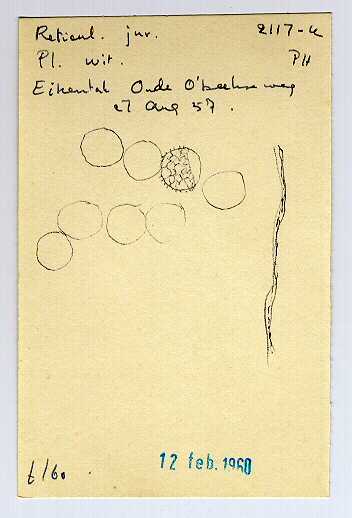 Reticul. jur. 2117-k
Pl. wit. PH
Eikental Oude O'beekse weg
27 Aug 57.
t/60
12 feb. 1960